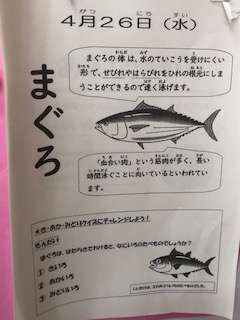 4月26日（水）
まぐろ
まぐろの体は、水のていこうを受けにくい
形で、せびれやはらびれをひれの根元にしま
うことができるので速く泳げます。
「血合い肉」という筋肉が多く、長い
時間泳ぐことに向いているといわれてい
ます。
★き・あか・みどりクイズにチャレンジしよう！
せんだい
まぐろは、はたらきでわけると、なにいろのたべものでしょうか？
① きいろ
② あかいろ
③ みどりいろ